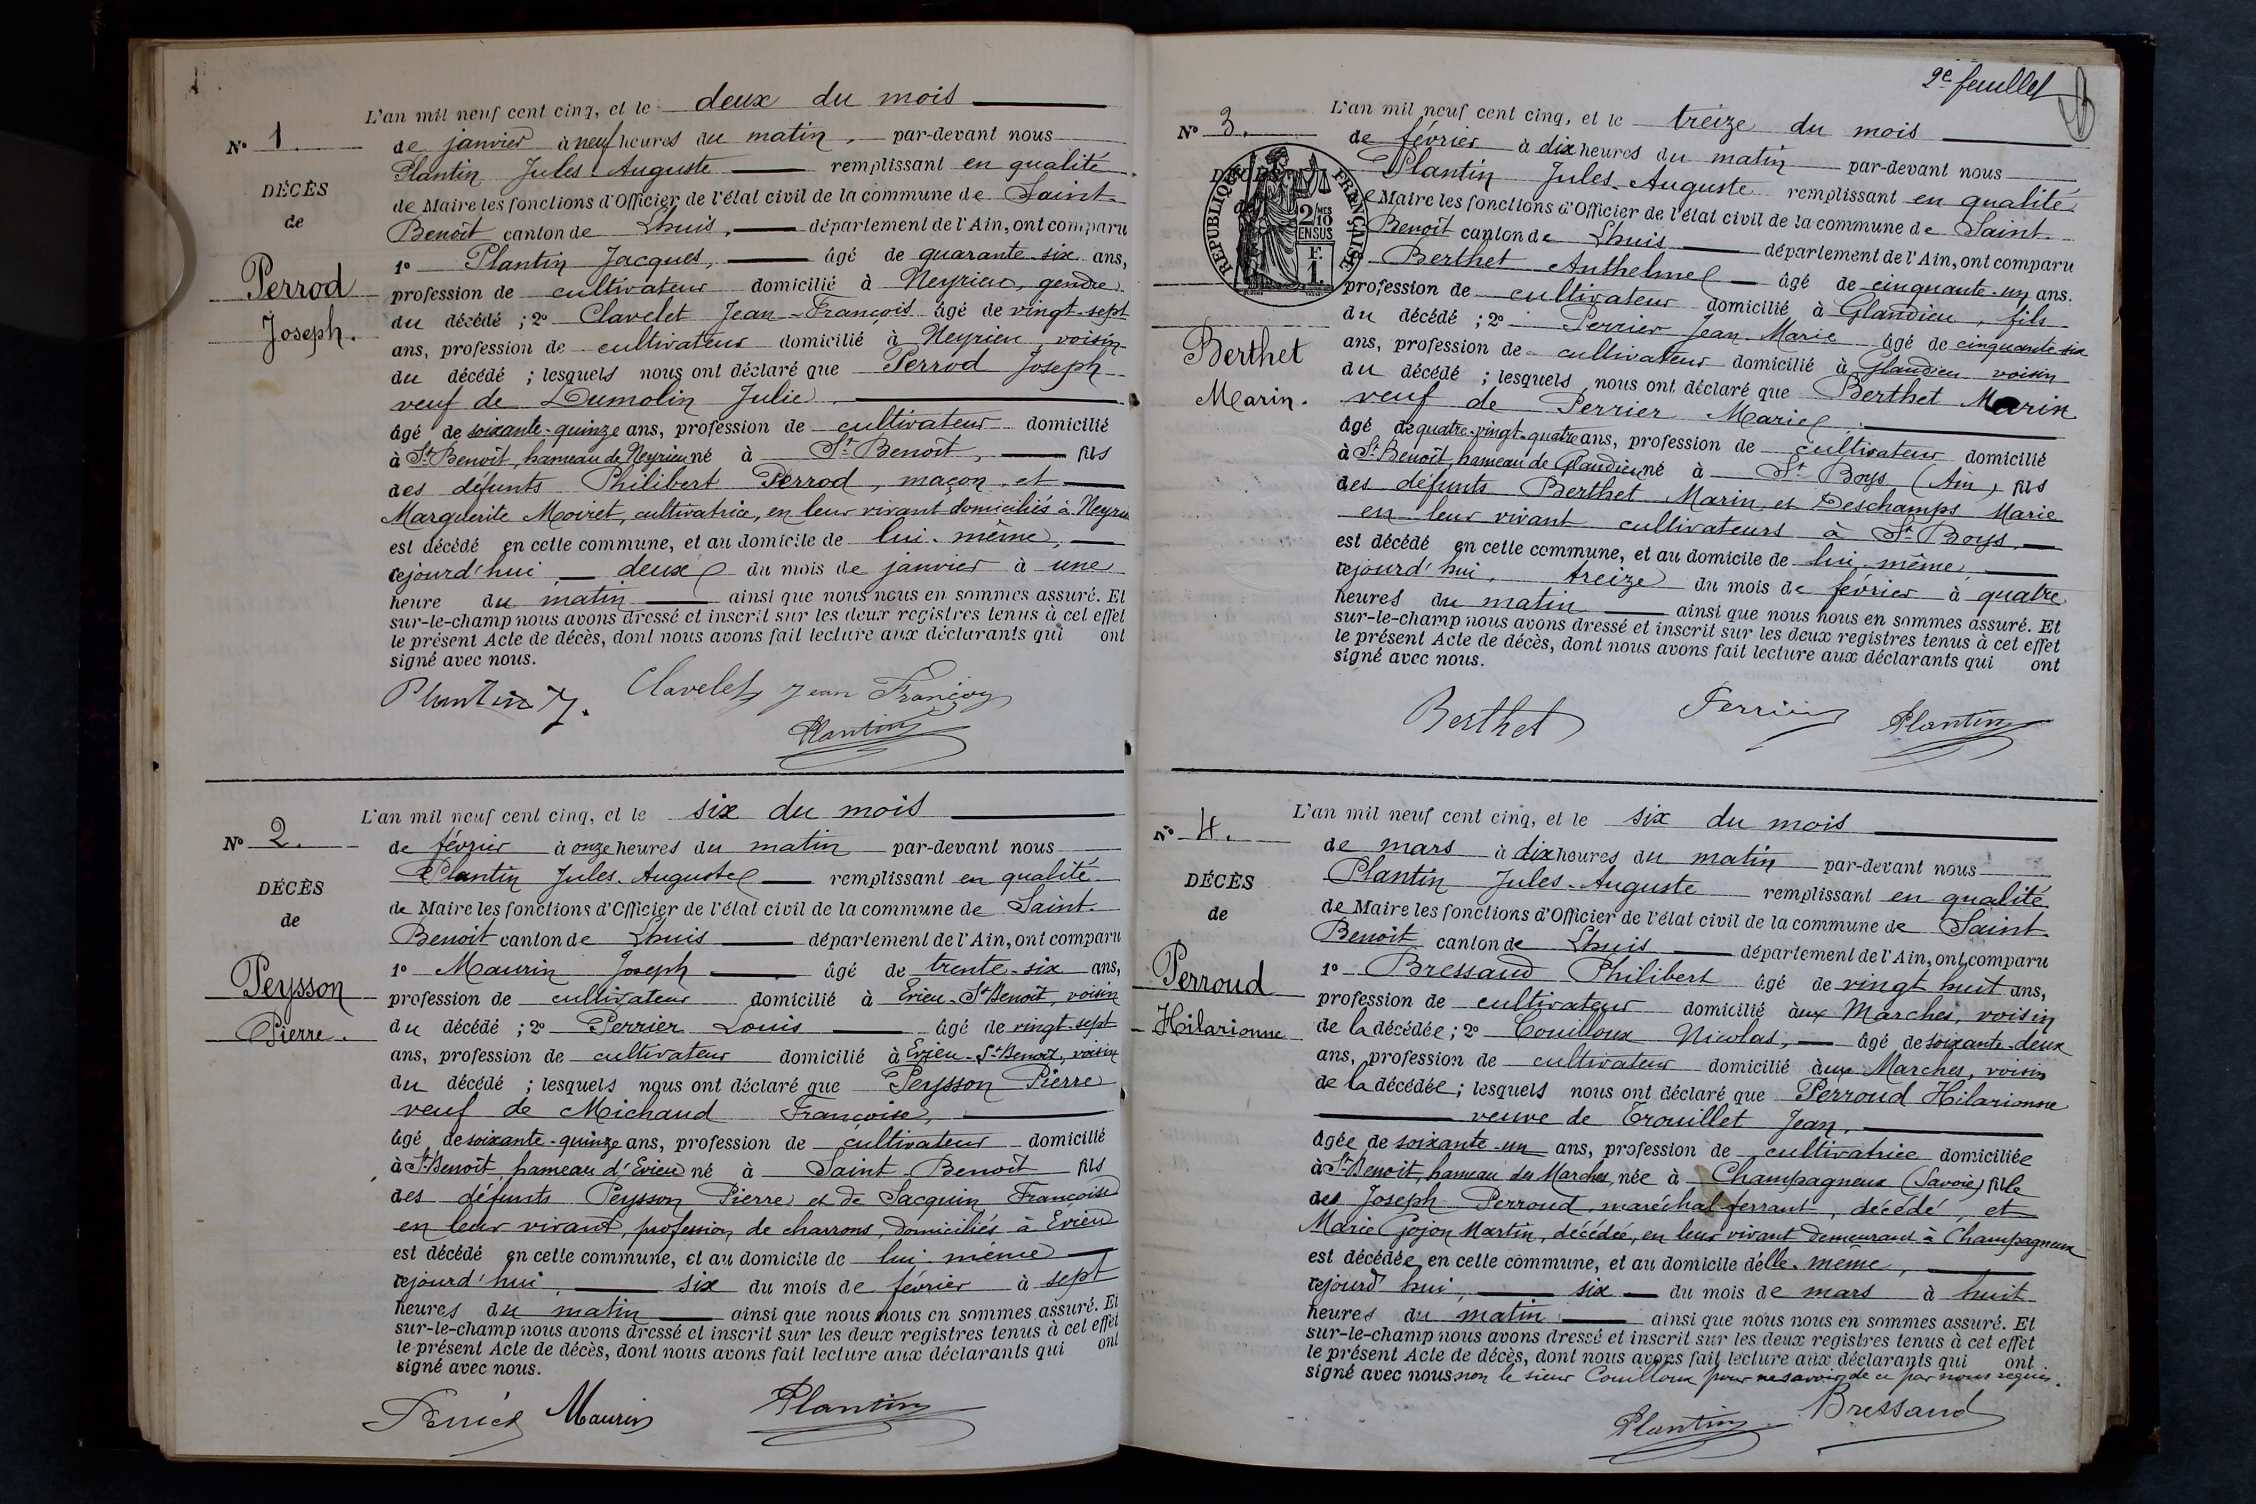 L'an mil neuf cent cinq, et le deux du mois
N° 1.
de janvier à neuf heures du matin, par-devant nous
Plantin Jules-Auguste remplissant en qualité
DÉCÈS
de Maire les fonctions d'Officier de l'état civil de la commune de Saint-
de
Benoît canton de Lhuis, département de l'Ain, ont comparu
1° Plantin Jacques, âgé de quarante-six ans,
Perrod
profession de cultivateur domicilié à Neyrieu, gendre
Joseph.
du décédé ; 2° Clavelet Jean-François âgé de vingt-sept
ans, profession de cultivateur domicilié à Neyrieu, voisin
du décédé ; lesquels nous ont déclaré que Perrod Joseph
veuf de Dumolin Julie
âgé de soixante-quinze ans, profession de cultivateur domicilié
à St Benoît, hameau de Neyrieu né à St Benoît, fils
des défunts Philibert Perrod, maçon, et
Marguerite Moiret, cultivatrice, en leur vivant domiciliés à Neyrieu
est décédé en cette commune, et au domicile de lui-même,
cejourd'hui deux du mois de janvier à une
heure du matin ainsi que nous nous en sommes assuré. Et
sur-le-champ nous avons dressé et inscrit sur les deux registres tenus à cet effet
le présent Acte de décès, dont nous avons fait lecture aux déclarants qui ont
signé avec nous.
Plantin J. Clavelet Jean François
Plantin
L'an mil neuf cent cinq, et le six du mois
N° 2.
de février à onze heures du matin par-devant nous
Plantin Jules-Auguste remplissant en qualité
DÉCÈS
de Maire les fonctions d'Officier de l'état civil de la commune de Saint-
de
Benoît canton de Lhuis département de l'Ain, ont comparu
1° Maurin Joseph âgé de trente-six ans,
Peysson
profession de cultivateur domicilié à Evieu-St Benoît, voisin
Pierre.
du décédé ; 2° Perrier Louis âgé de vingt-sept
ans, profession de cultivateur domicilié à Evieu-St Benoît, voisin
du décédé ; lesquels nous ont déclaré que Peysson Pierre
veuf de Michaud Françoise,
âgé de soixante-quinze ans, profession de cultivateur domicilié
à St Benoît, hameau d'Evieu né à Saint-Benoît fils
des défunts Peysson Pierre et de Jacquin Françoise
en leur vivant, profession de charrons, domiciliés à Evieu
est décédé en cette commune, et au domicile de lui-même
cejourd'hui, six du mois de février à sept
heures du matin ainsi que nous nous en sommes assuré. Et
sur-le-champ nous avons dressé et inscrit sur les deux registres tenus à cet effet
le présent Acte de décès, dont nous avons fait lecture aux déclarants qui ont
signé avec nous.
Maurin Plantin
2e feuillet
L'an mil neuf cent cinq, et le treize du mois
N° 3.
de février à dix heures du matin par-devant nous
Plantin Jules-Auguste remplissant en qualité
RÉPUBLIQUE FRANÇAISE
2/10MES
EN SUS
F.
1.
de Maire les fonctions d'Officier de l'état civil de la commune de Saint-
Benoît canton de Lhuis département de l'Ain, ont comparu
Berthet Anthelme âgé de cinquante-un ans.
profession de cultivateur domicilié à Glandieu, fils
du décédé ; 2° Perrier Jean-Marie âgé de cinquante-six
Berthet
ans, profession de cultivateur domicilié à Glandieu voisin
du décédé ; lesquels nous ont déclaré que Berthet Marin
Marin.
veuf de Perrier Marie
âgé de quatre-vingt-quatre ans, profession de cultivateur domicilié
à St Benoît, hameau de Glandieu né à St Boys (Ain) fils
des défunts Berthet Marin et Deschamps Marie
en leur vivant cultivateurs à St Boys.
est décédé en cette commune, et au domicile de lui-même
cejourd'hui, treize du mois de février à quatre
heures du matin ainsi que nous nous en sommes assuré. Et
sur-le-champ nous avons dressé et inscrit sur les deux registres tenus à cet effet
le présent Acte de décès, dont nous avons fait lecture aux déclarants qui ont
signé avec nous.
Berthet Perrier Plantin
L'an mil neuf cent cinq, et le six du mois
N° 4.
de mars à dix heures du matin par-devant nous
DÉCÈS
Plantin Jules-Auguste remplissant en qualité
de
de Maire les fonctions d'Officier de l'état civil de la commune de Saint-
Benoît canton de Lhuis département de l'Ain, ont comparu
Perroud
1° Bressaud Philibert âgé de vingt huit ans,
profession de cultivateur domicilié aux Marches, voisin
Hilarionne
de la décédée ; 2° Couilloux Nicolas, âgé de soixante-deux
ans, profession de cultivateur domicilié aux Marches, voisin
de la décédée ; lesquels nous ont déclaré que Perroud Hilarionne
veuve de Trouillet Jean,
âgée de soixante-un ans, profession de cultivatrice domiciliée
à St Benoît, hameau des Marches, née à Champagneux (Savoie) fille
des Joseph Perroud, maréchal-ferrant, décédé, et
Marie Gojon Martin, décédée, en leur vivant demeurant à Champagneux
est décédée en cette commune, et au domicile d'elle-même,
cejourd'hui, six du mois de mars à huit
heures du matin ainsi que nous nous en sommes assuré. Et
sur-le-champ nous avons dressé et inscrit sur les deux registres tenus à cet effet
le présent Acte de décès, dont nous avons fait lecture aux déclarants qui ont
signé avec nous non le sieur Couilloux pour ne savoir de ce par nous requis.
Plantin Bressaud